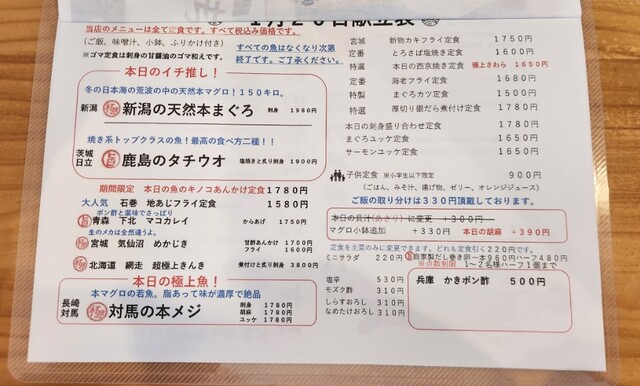 1月20日献立表
当店のメニューは全て定食です。すべて税込み価格です。
(ご飯、味噌汁、小鉢、ふりかけ付き)
※ゴマ定食は刺身の甘醤油のゴマ和えです。
すべての魚はなくなり次第
終了です。ご了承ください。
本日のイチ推し!
冬の日本海の荒波の中の天然本マグロ!150キロ。
新潟 新潟の天然本まぐろ 刺身 1980円
焼き系トップクラスの魚!最高の食べ方二種!!
茨城
日立 旨 鹿島のタチウオ 塩焼きと炙り刺身 1900円
期間限定 本日の魚のキノコあんかけ定食 1780円
大人気 石巻 地あじフライ定食 1580円
ポン酢と薬味でさっぱり
旨 青森 下北 マコカレイ からあげ 1750円
生のメカは全然違うよ。
宮城 気仙沼 めかじき 甘酢あんかけ 1700円
フライ 1600円
北海道 網走 超極上きんき 煮付けと炙り刺身 3800円
本日の極上魚!
本マグロの若魚。脂あって味が濃厚で絶品
長崎
対馬 対馬の本メジ 刺身 1780円
胡麻 1780円
ユッケ 1780円
宮城 新物カキフライ定食 1750円
定番 とろさば塩焼き定食 1600円
特選 本日の西京焼き定食 極上さわら 1650円
定番 海老フライ定食 1680円
特製 まぐろカツ定食 1500円
特選 厚切り銀だら煮付け定食 1780円
本日の刺身盛り合わせ定食 1780円
まぐろユッケ定食 1650円
サーモンユッケ定食 1650円
子供定食 ※小学生以下限定 900円
(ごはん、みそ汁、揚げ物、ゼリー、オレンジジュース)
ご飯の取り分けは330円頂戴しております。
本日の貝汁(あさり)に変更 +300円
マグロ小鉢追加 +330円 本日の胡麻 +390円
定食を主菜のみに変更できます。どれも定食引く220円です。
ミニサラダ 220円 自家製だし巻き卵一本960円ハーフ480円
※点数制限 1~2名様ハーフ1個まで
塩辛 530円
モズク酢 310円
しらすおろし 310円
なめたけおろし 310円
兵庫 かきポン酢 500円